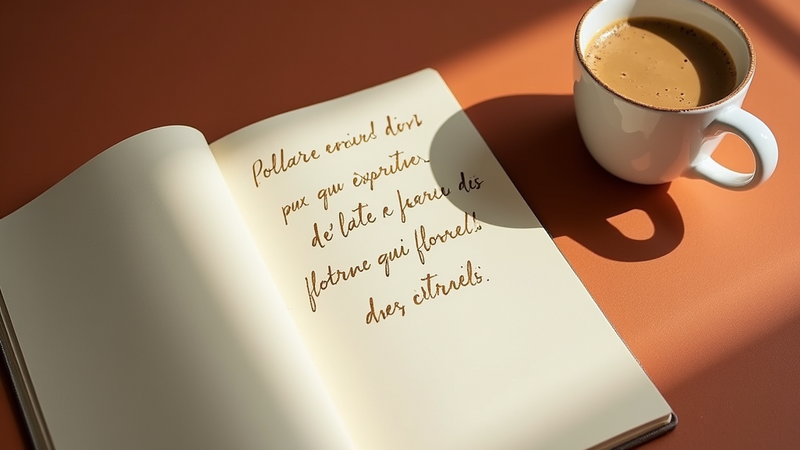 Pollare enird dort
pux qu expritie
de' late e fearie dis
flotrne qui florrel!
dres citrnels.